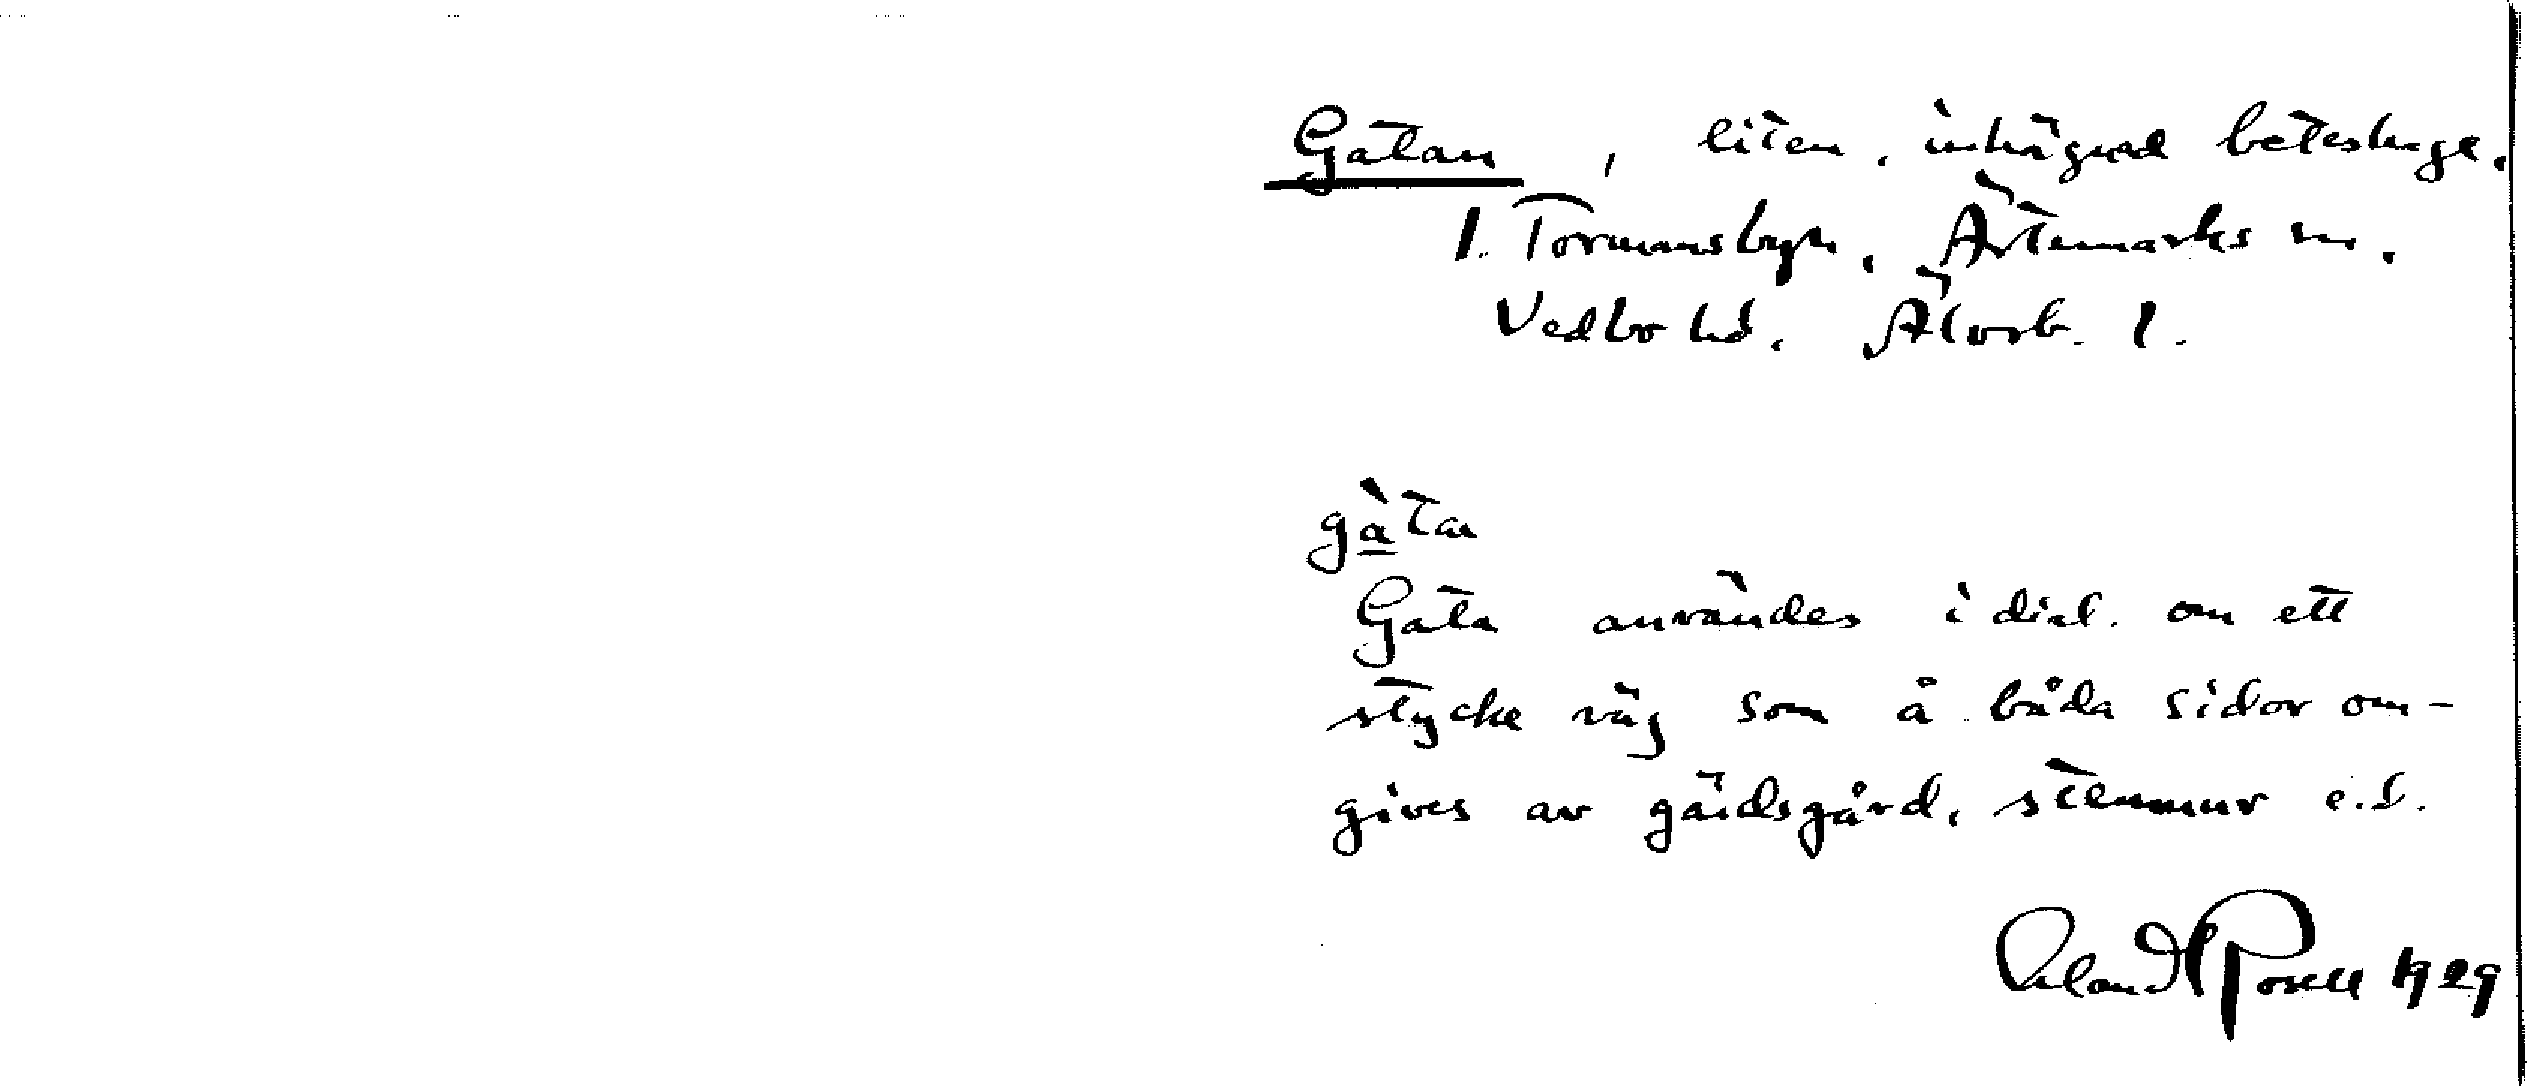 Gatan, liten, inhägnad beteshage,
1. Tormansbyn, Ärtemarks sn,
Vedbo hd, Älvsb. l.
gàtan
Gata användes i dial. om ett
stycke väg som å båda sidor om-
gives av gärdsgård, stenmur e.d.
Rosell 1929